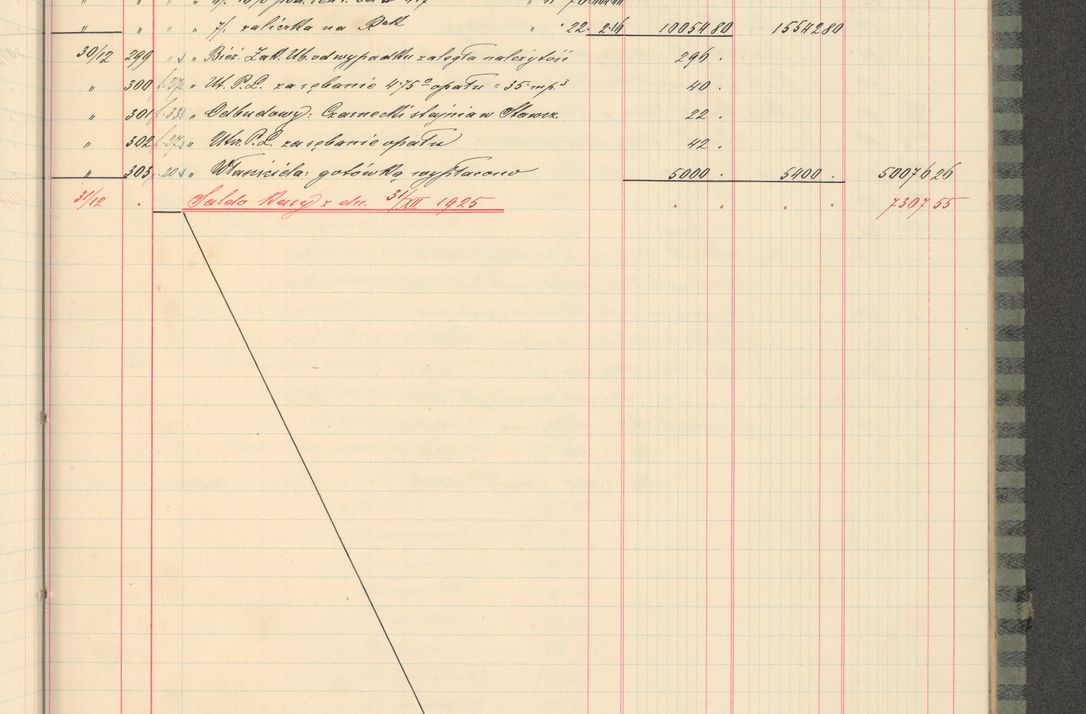 " " " 7/. zaliczka na Rok " " 22. 216 1005480 1554280
30/12 299 " " Bież. Zakł. Ub. od wypadku zaległa należytość 296 .
" 300 " Ut. P.L. za rąbanie 475² opału = 35 mp.³ 40 .
" 301 " Odbudowy: Czarnecki stajnia w Stawisz. 22 .
" 302 " Utrz. P.L. za rąbanie opału 42 .
" 303 " Właściciela: gotówką wypłacono 5000 . 5400 . 5007626
31/12 . Saldo Kasy z dn. 31/XII 1925 . . . . 730755